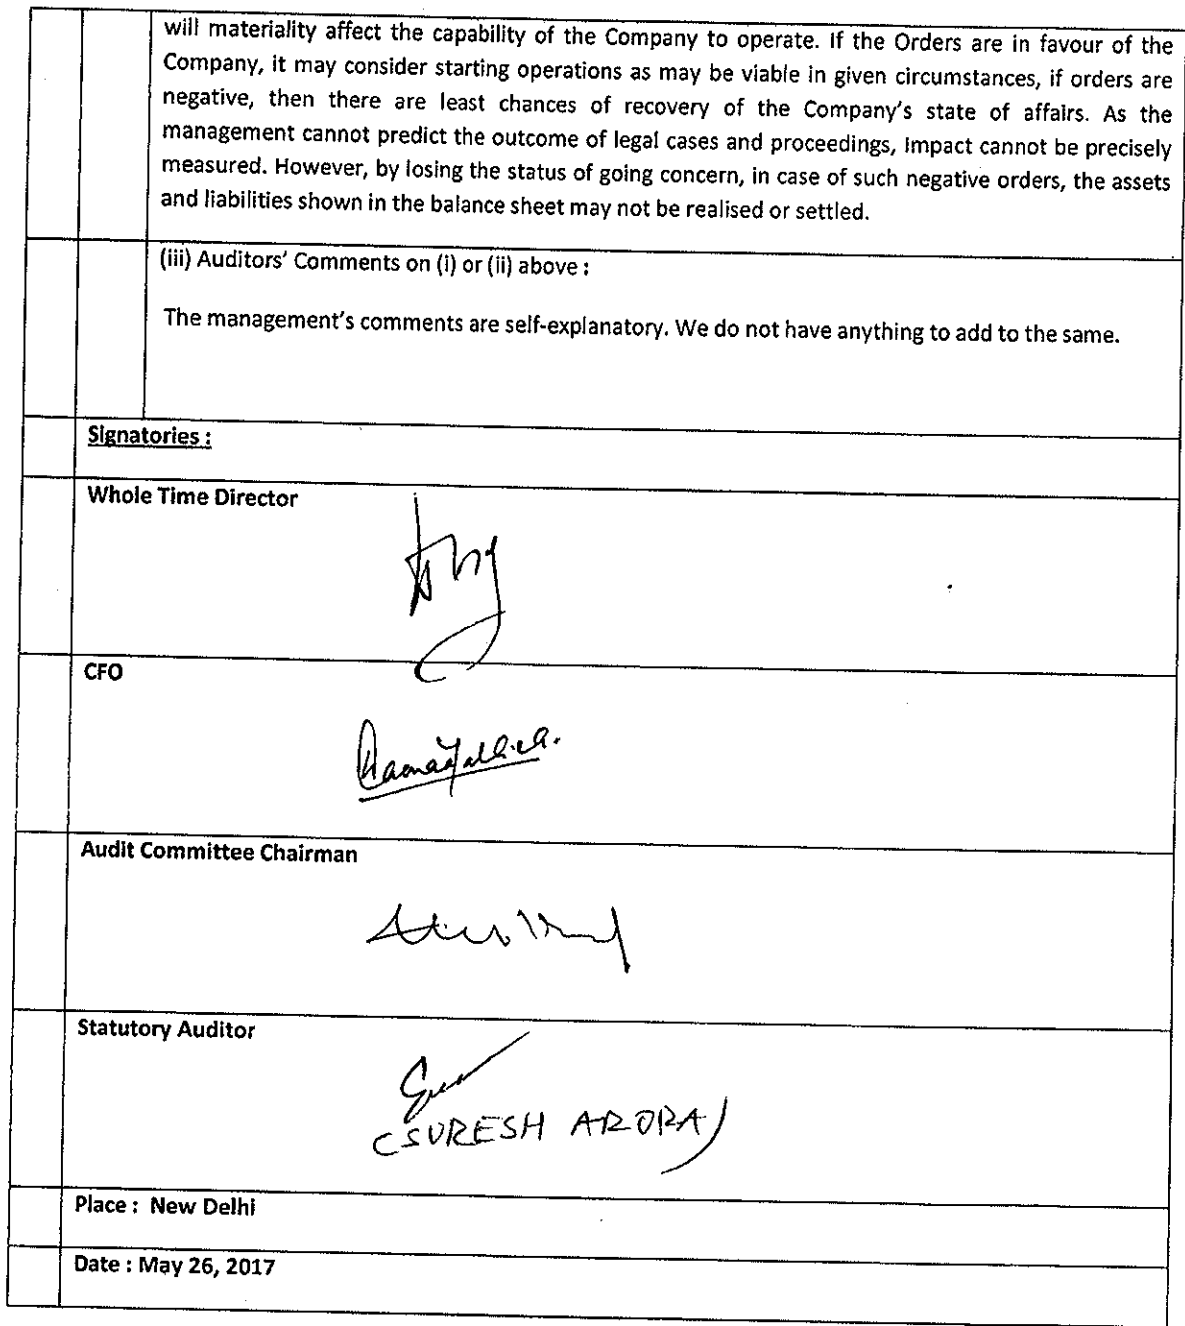 will materiality affect the capability of the Company to operate. If the Orders are in favour of the
Company, it may consider starting operations as may be viable in given circumstances, if orders are
negative, then there are least chances of recovery of the Company's state of affairs. As the
management cannot predict the outcome of legal cases and proceedings, Impact cannot be precisely
measured. However, by losing the status of going concern, in case of such negative orders, the assets
and liabilities shown in the balance sheet may not be realised or settled.
(iii) Auditors' Comments on (i) or (ii) above :
The management's comments are self-explanatory. We do not have anything to add to the same.
Signatories :
Whole Time Director
CFO
Audit Committee Chairman
Statutory Auditor
(SURESH ARORA)
Place : New Delhi
Date : May 26, 2017